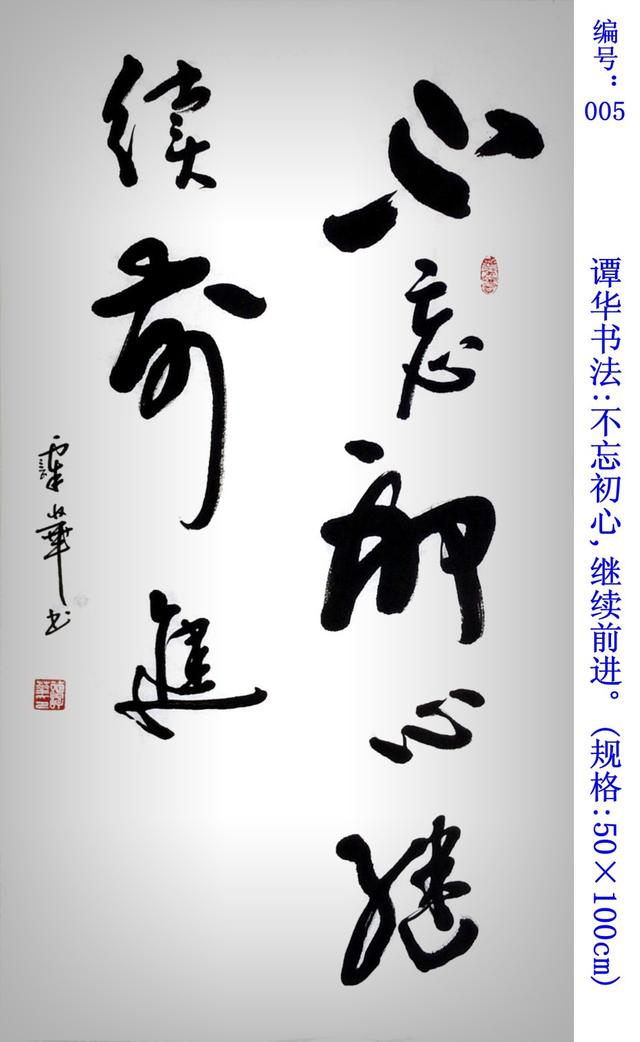 编号：005
谭华书法:不忘初心,继续前进。(规格:50×100cm)
不忘初心继
续前进
谭华书